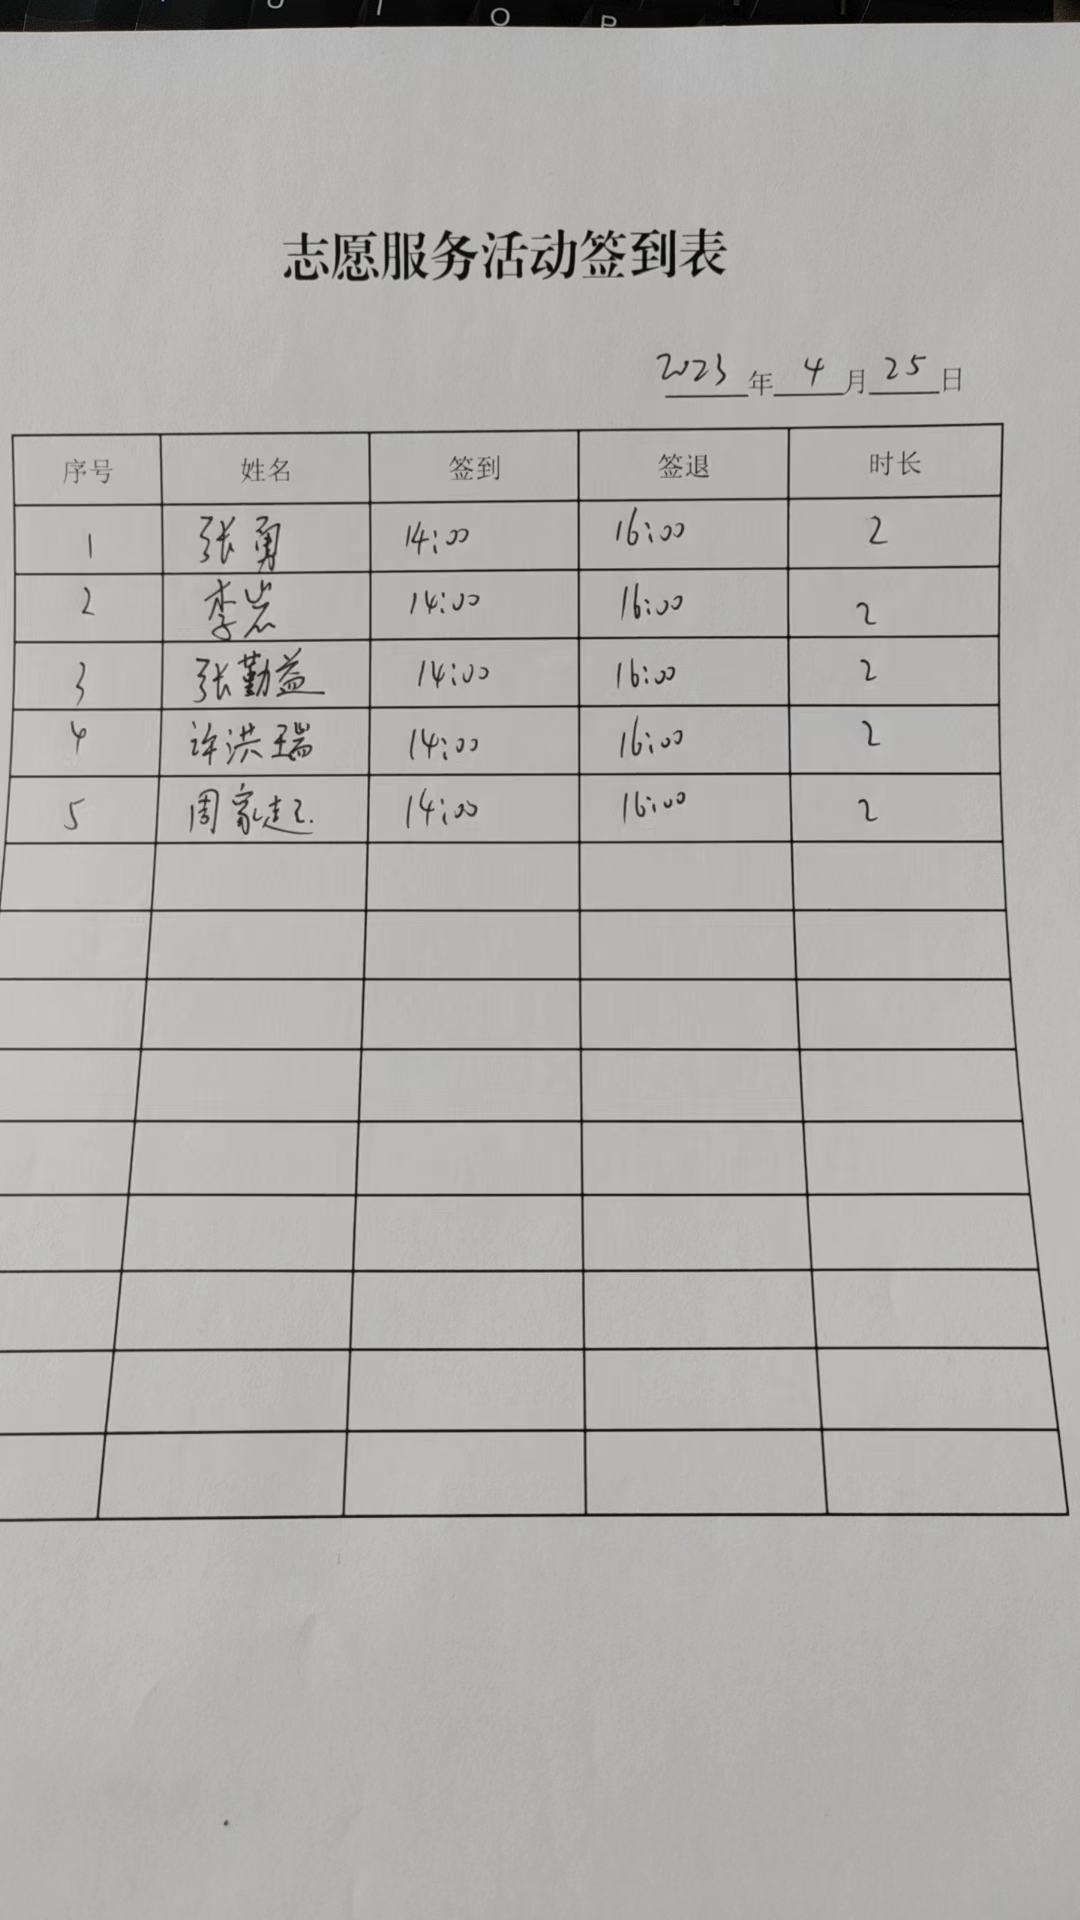 U I O P
志愿服务活动签到表
2023年4月25日
序号 姓名 签到 签退 时长
1 张勇 14:00 16:00 2
2 李岩 14:00 16:00 2
3 张勤益 14:00 16:00 2
4 许洪瑞 14:00 16:00 2
5 周家起 14:00 16:00 2